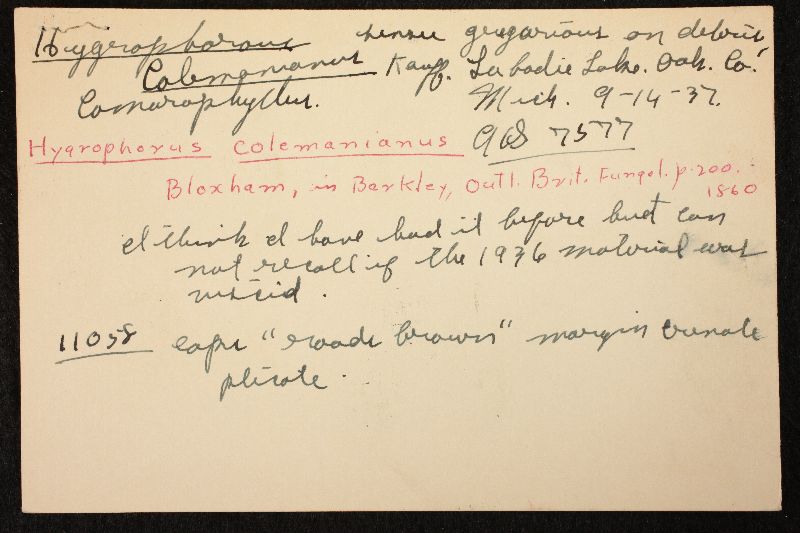 Hygrophorous sensu gregarious on debris
Colemanianus Kauff. Labadie Lake. Oak. Co.
Camarophyllus. Mich. 9-14-37.
7577
Hygrophorus Colemanianus
Bloxham, in Berkley, Outl. Brit. Fungol. p. 200.
1860
I think I have had it before but can
not recall if the 1936 material was
viscid.
11058 caps "woods brown" margin crenate
plicate.